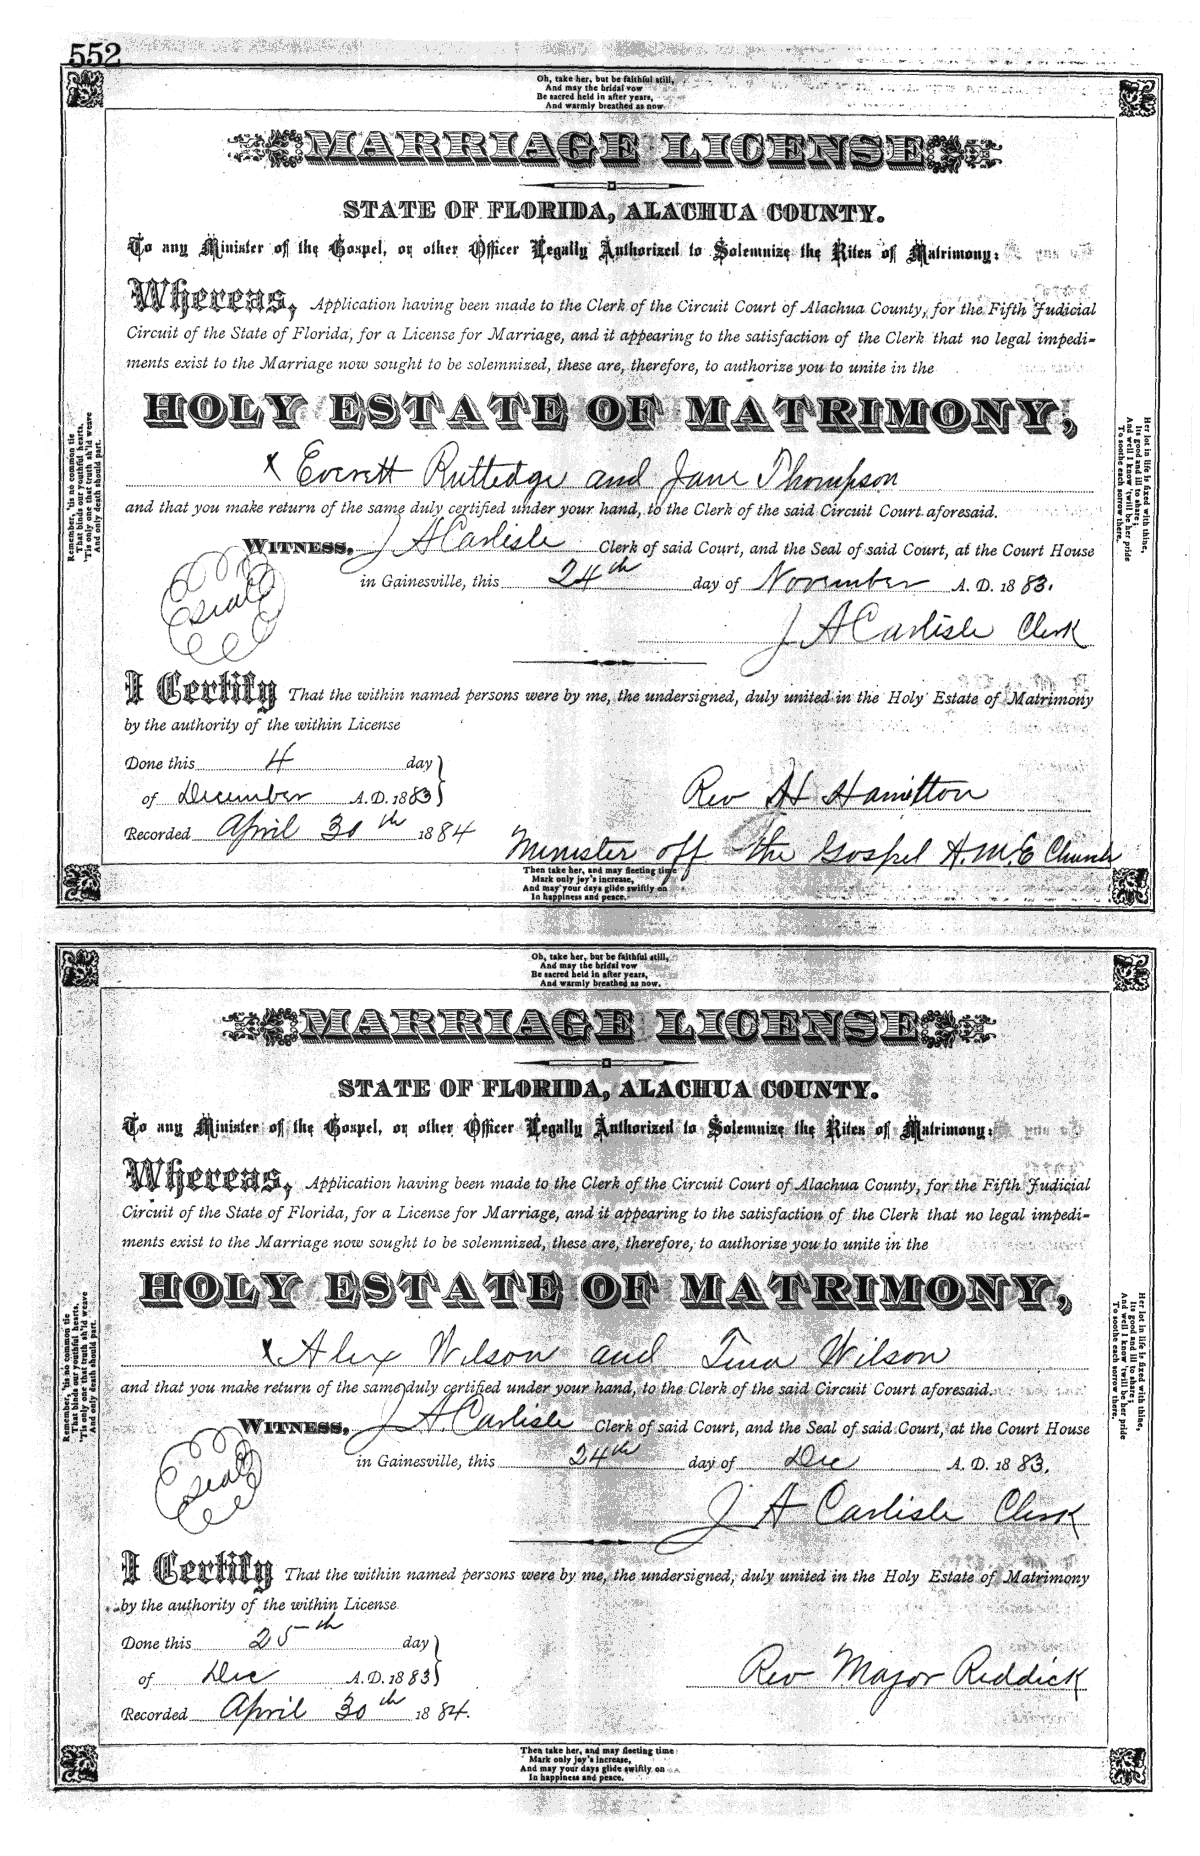 552
Oh, take her, but be faithful still,
And may the bridal vow
Be sacred held in after years,
And warmly breathed as now.
MARRIAGE LICENSE
STATE OF FLORIDA, ALACHUA COUNTY.
To any Minister of the Gospel, or other Officer Legally Authorized to Solemnize the Rites of Matrimony:
Whereas, Application having been made to the Clerk of the Circuit Court of Alachua County, for the Fifth Judicial
Circuit of the State of Florida, for a License for Marriage, and it appearing to the satisfaction of the Clerk that no legal impedi-
ments exist to the Marriage now sought to be solemnized, these are, therefore, to authorize you to unite in the
HOLY ESTATE OF MATRIMONY,
x Everett Rutledge and Jane Thompson
and that you make return of the same duly certified under your hand, to the Clerk of the said Circuit Court aforesaid.
WITNESS, J A Carlisle Clerk of said Court, and the Seal of said Court, at the Court House
in Gainesville, this 24th day of November A. D. 1883.
Seal
J A Carlisle Clerk
I Certify That the within named persons were by me, the undersigned, duly united in the Holy Estate of Matrimony
by the authority of the within License
Done this 4 day
of December A. D. 1883
Rev H Hamilton
Recorded April 30th 1884
Minister off the Gospel A.M.E Church
Then take her, and may fleeting time
Mark only joy's increase,
And may your days glide swiftly on
In happiness and peace.
Remember, 'tis no common tie
That binds our youthful hearts,
'Tis only one that truth sh'ld weave
And only death should part.
Her lot in life is fixed with thine,
Its good and ill to share;
And well I know 'twill be her pride
To soothe each sorrow there.
Oh, take her, but be faithful still,
And may the bridal vow
Be sacred held in after years,
And warmly breathed as now.
MARRIAGE LICENSE
STATE OF FLORIDA, ALACHUA COUNTY.
To any Minister of the Gospel, or other Officer Legally Authorized to Solemnize the Rites of Matrimony:
Whereas, Application having been made to the Clerk of the Circuit Court of Alachua County, for the Fifth Judicial
Circuit of the State of Florida, for a License for Marriage, and it appearing to the satisfaction of the Clerk that no legal impedi-
ments exist to the Marriage now sought to be solemnized, these are, therefore, to authorize you to unite in the
HOLY ESTATE OF MATRIMONY,
x Alex Wilson and Tina Wilson
and that you make return of the same duly certified under your hand, to the Clerk of the said Circuit Court aforesaid.
WITNESS, J. A. Carlisle Clerk of said Court, and the Seal of said Court, at the Court House
in Gainesville, this 24th day of Dec A. D. 1883.
Seal
J A Carlisle Clerk
I Certify That the within named persons were by me, the undersigned, duly united in the Holy Estate of Matrimony
by the authority of the within License
Done this 25th day
of Dec A. D. 1883
Rev Major Reddick
Recorded April 30th 1884.
Then take her, and may fleeting time
Mark only joy's increase,
And may your days glide swiftly on
In happiness and peace.
Remember, 'tis no common tie
That binds our youthful hearts,
'Tis only one that truth sh'ld weave
And only death should part.
Her lot in life is fixed with thine,
Its good and ill to share;
And well I know 'twill be her pride
To soothe each sorrow there.